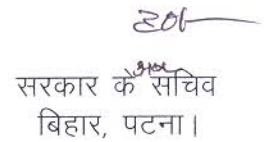 ह०/-
सरकार के अपर सचिव
बिहार, पटना।